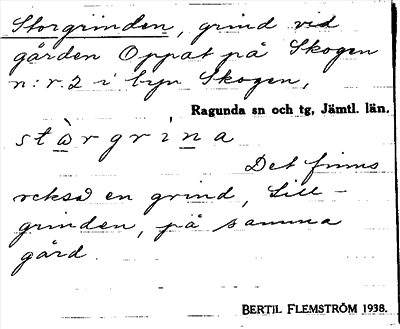 Storgrinden, grind vid
gården Oppat på Skogen
n:r 2 i byn Skogen,
Ragunda sn och tg, Jämtl. län.
stàrgrìna
Det finns
också en grind, Lill-
grinden, på samma
gård.
BERTIL FLEMSTRÖM 1938.